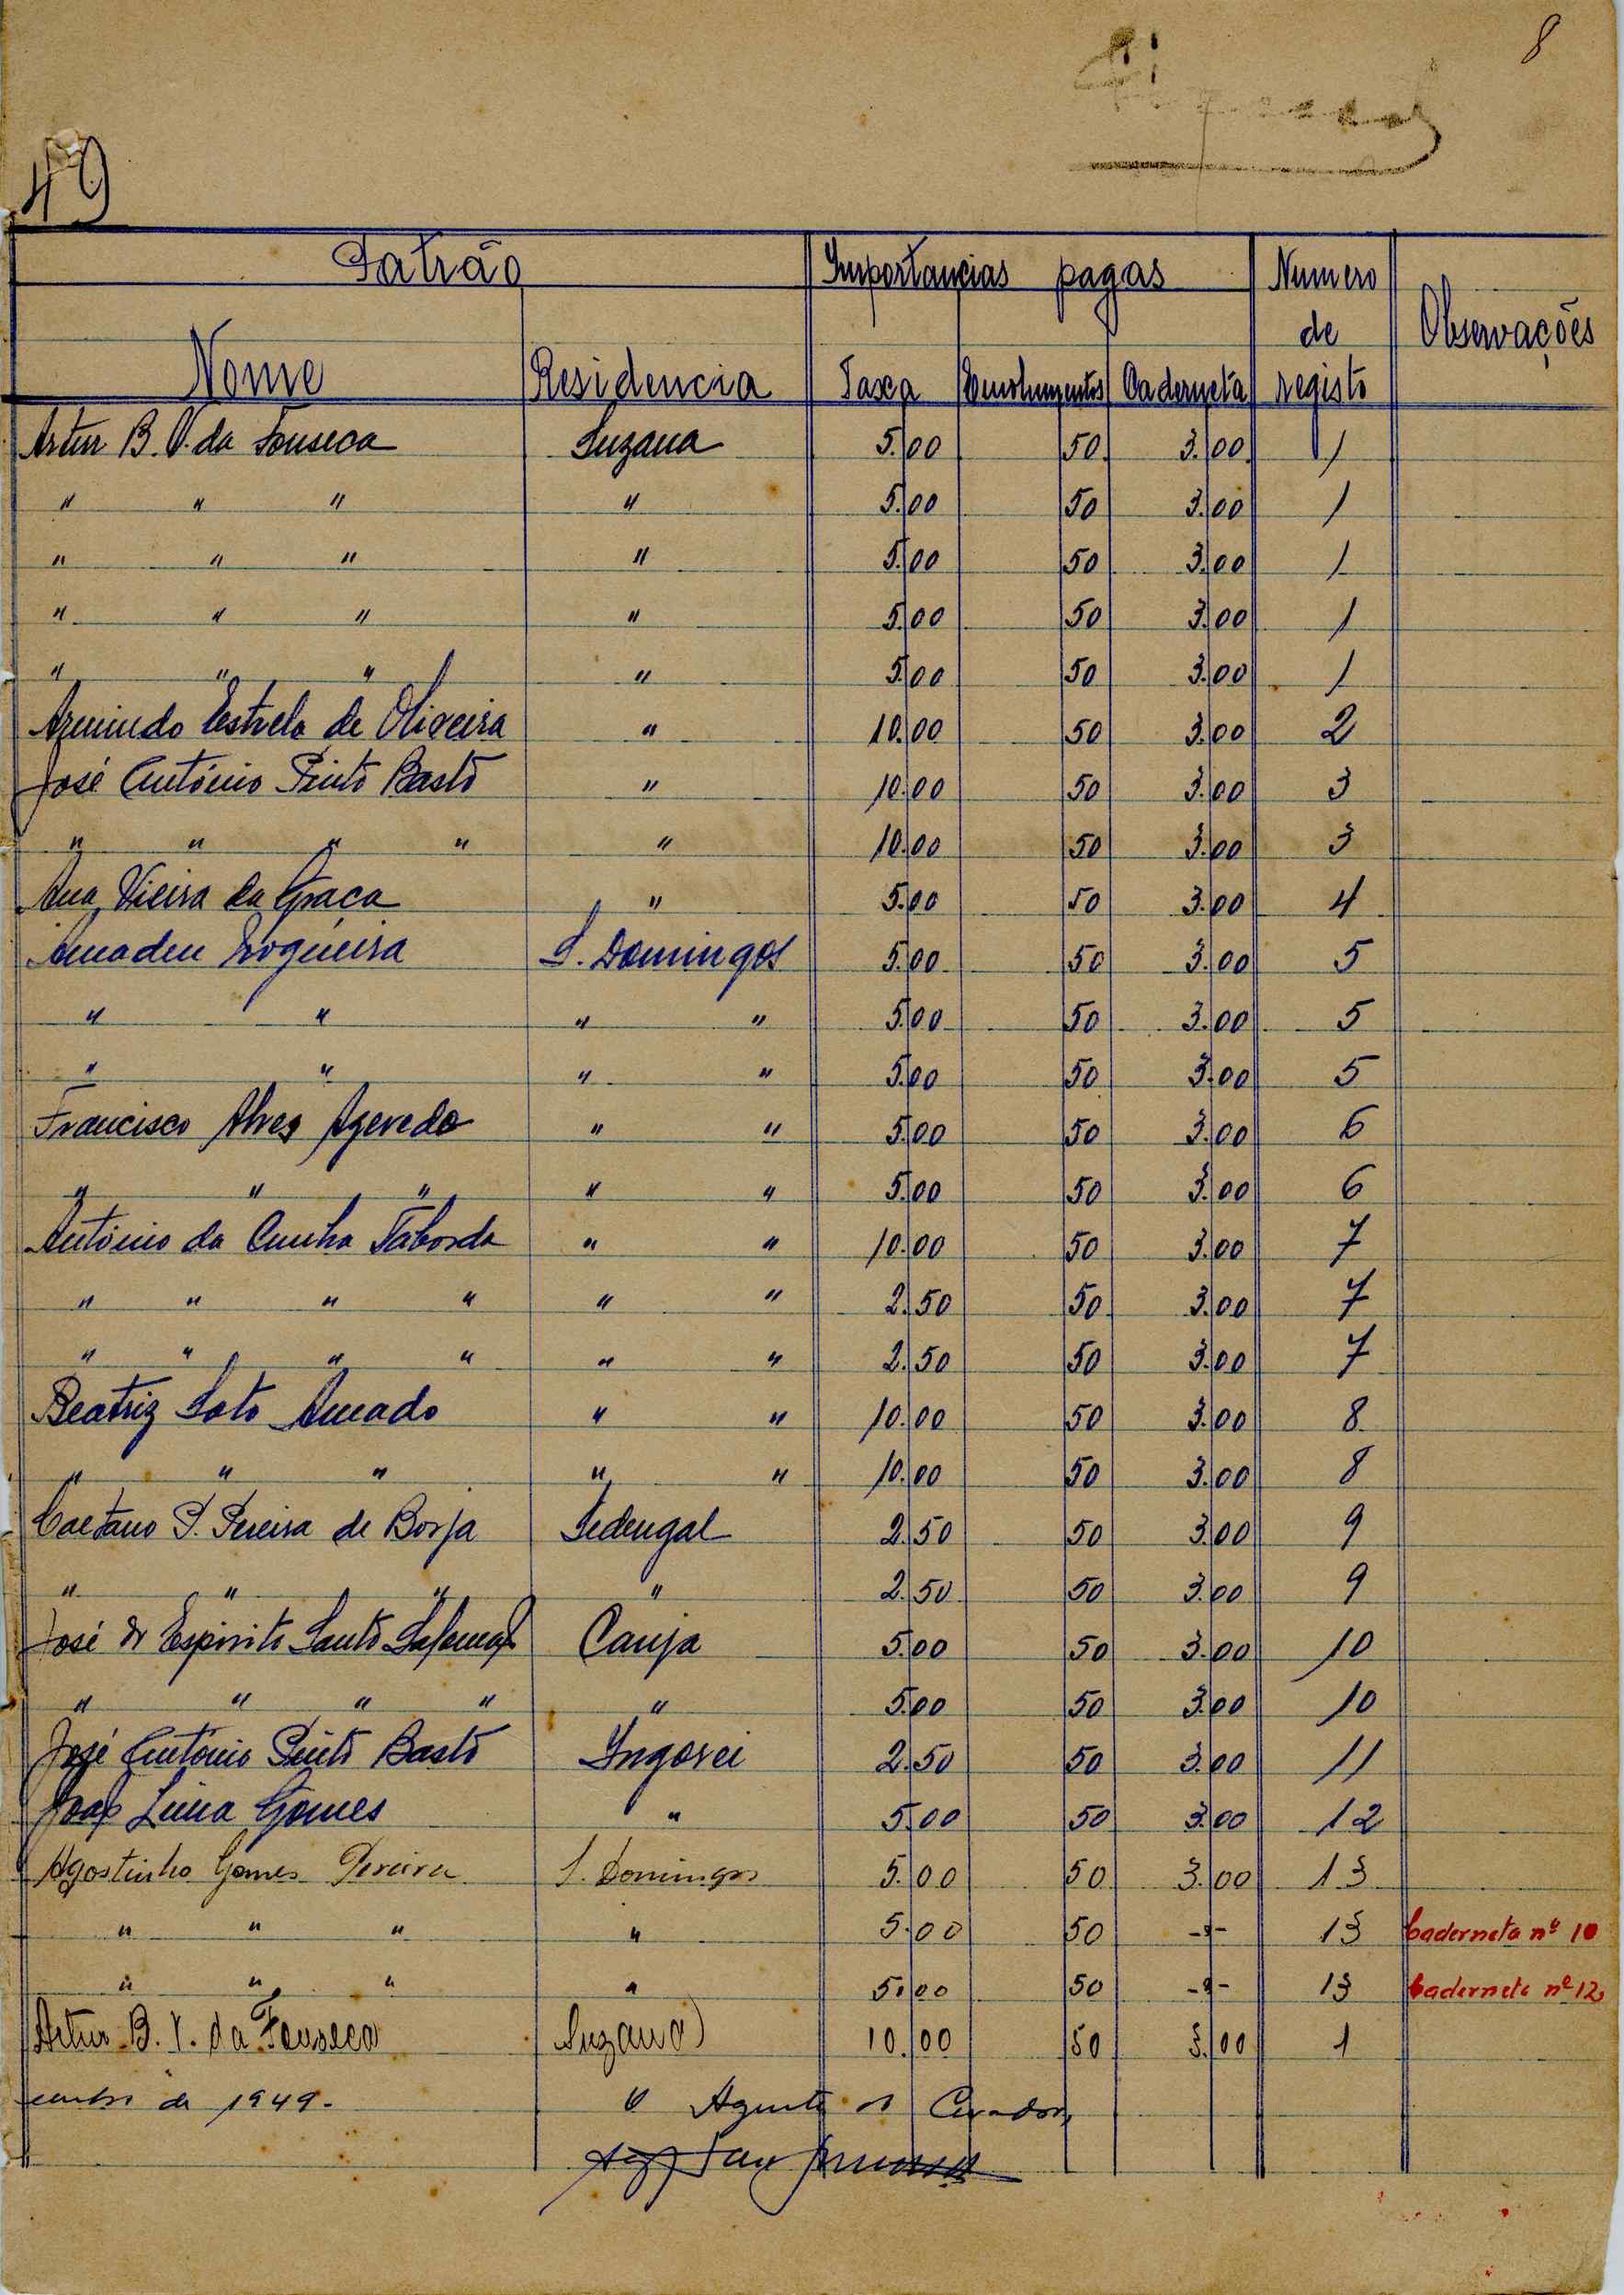 8
49
Patrão Importancias pagas Numero
de Observações
Nome Residencia Taxa Emolumentos Caderneta registo
Artur B. V. da Fonseca Suzana 5.00 50 3.00 1
" " " " 5.00 50 3.00 1
" " " " 5.00 50 3.00 1
" " " " 5.00 50 3.00 1
" " " " 5.00 50 3.00 1
Armindo Estrela de Oliveira " 10.00 50 3.00 2
José António Pinto Basto " 10.00 50 3.00 3
" " " " " 10.00 50 3.00 3
Ana Vieira da Graça " 5.00 50 3.00 4
Amadeu Nogueira S. Domingos 5.00 50 3.00 5
" " " " 5.00 50 3.00 5
" " " " 5.00 50 3.00 5
Francisco Alves Azevedo " " 5.00 50 3.00 6
" " " " " 5.00 50 3.00 6
António da Cunha Taborda " " 10.00 50 3.00 7
" " " " " " 2.50 50 3.00 7
" " " " " " 2.50 50 3.00 7
Beatriz Soto Amado " " 10.00 50 3.00 8
" " " " " 10.00 50 3.00 8
Caetano P. Pereira de Borja Sedengal 2.50 50 3.00 9
" " " " 2.50 50 3.00 9
José do Espirito Santo Canja 5.00 50 3.00 10
" " " " " 5.00 50 3.00 10
José António Pinto Basto Ingorei 2.50 50 3.00 11
João Lima Gomes " 5.00 50 3.00 12
Agostinho Gomes Pereira S. Domingos 5.00 50 3.00 13
" " " " 5.00 50 -"- 13 Caderneta nº 10
" " " " 5.00 50 -"- 13 Caderneta nº 12
Artur B. V. da Fonseca Suzana 10.00 50 3.00 1
embro de 1949. O Agente do Curador,